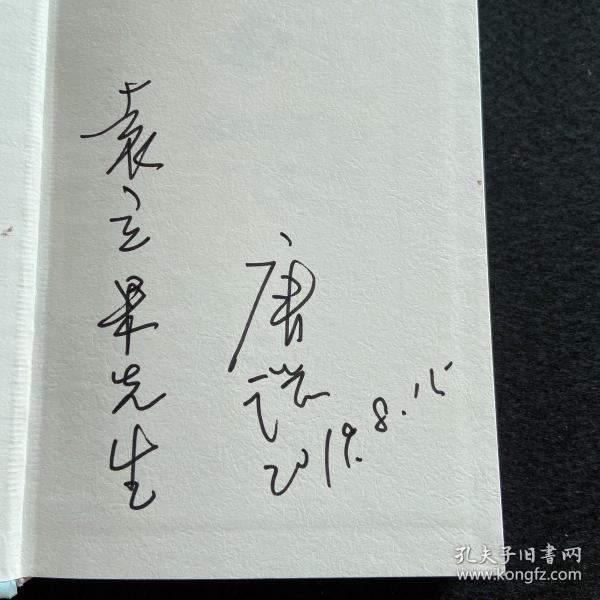 袁立军先生
唐
2019.8.15
孔夫子旧书网
www.kongfz.com